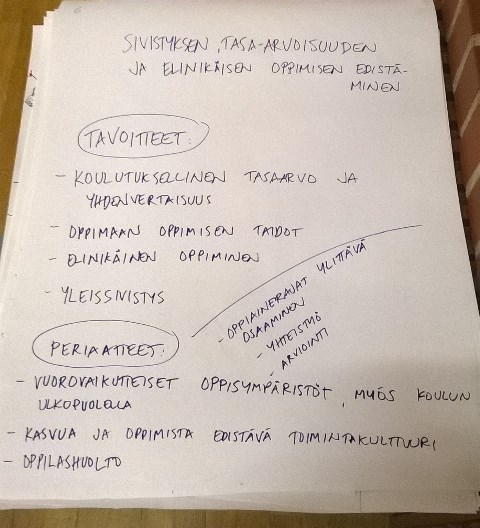 SIVISTYKSEN, TASA-ARVOISUUDEN
JA ELINIKÄISEN OPPIMISEN EDISTÄ-
MINEN
TAVOITTEET:
- KOULUTUKSELLINEN TASAARVO JA
YHDENVERTAISUUS
- OPPIMAAN OPPIMISEN TAIDOT
- ELINIKÄINEN OPPIMINEN
- YLEISSIVISTYS
- OPPIAINERAJAT YLITTÄVÄ
OSAAMINEN
- YHTEISTYÖ
- ARVIOINTI
PERIAATTEET:
- VUOROVAIKUTTEISET OPPISYMPÄRISTÖT, MYÖS KOULUN
ULKOPUOLELLA
- KASVUA JA OPPIMISTA EDISTÄVÄ TOIMINTAKULTTUURI
- OPPILASHUOLTO